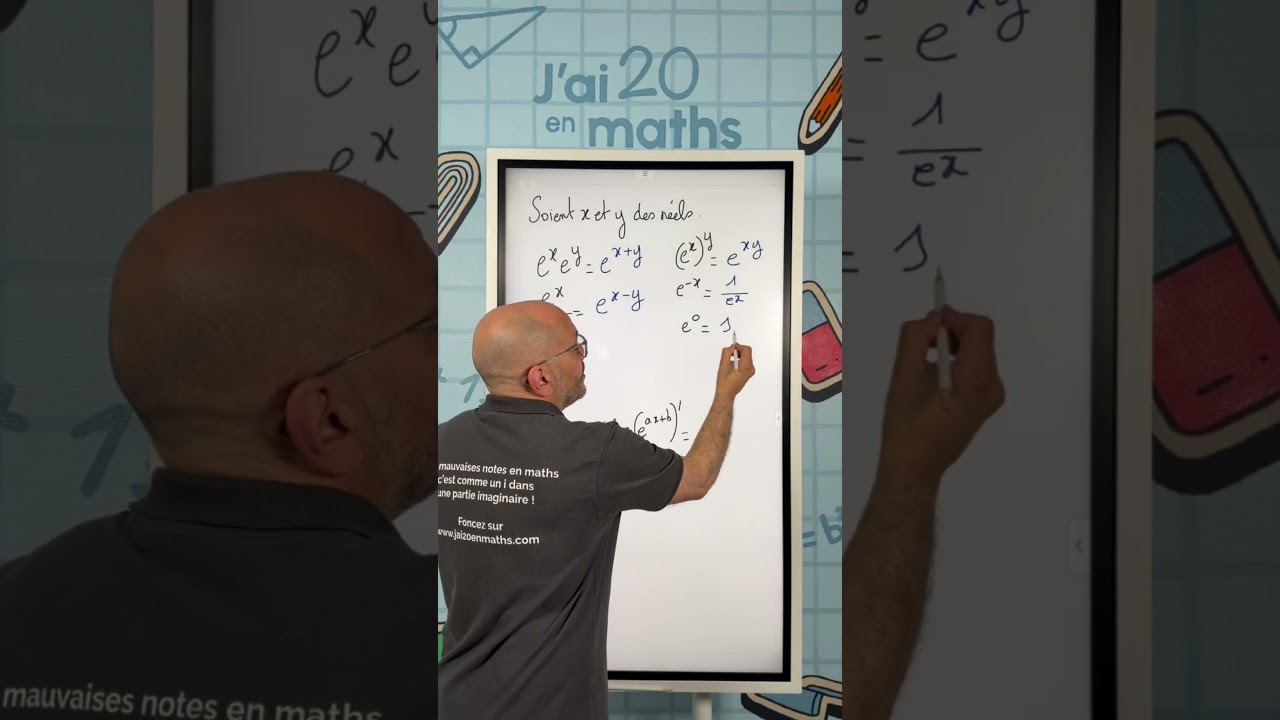 J'ai 20
en maths
Soient x et y des réels.
eˣ eʸ = eˣ⁺ʸ
(eˣ)ʸ = eˣʸ
eˣ = eˣ⁻ʸ
e⁻ˣ = 1/eˣ
e⁰ = 1
(e^{ax+b})' =
mauvaises notes en maths
c'est comme un i dans
une partie imaginaire !
Foncez sur
www.jai20enmaths.com